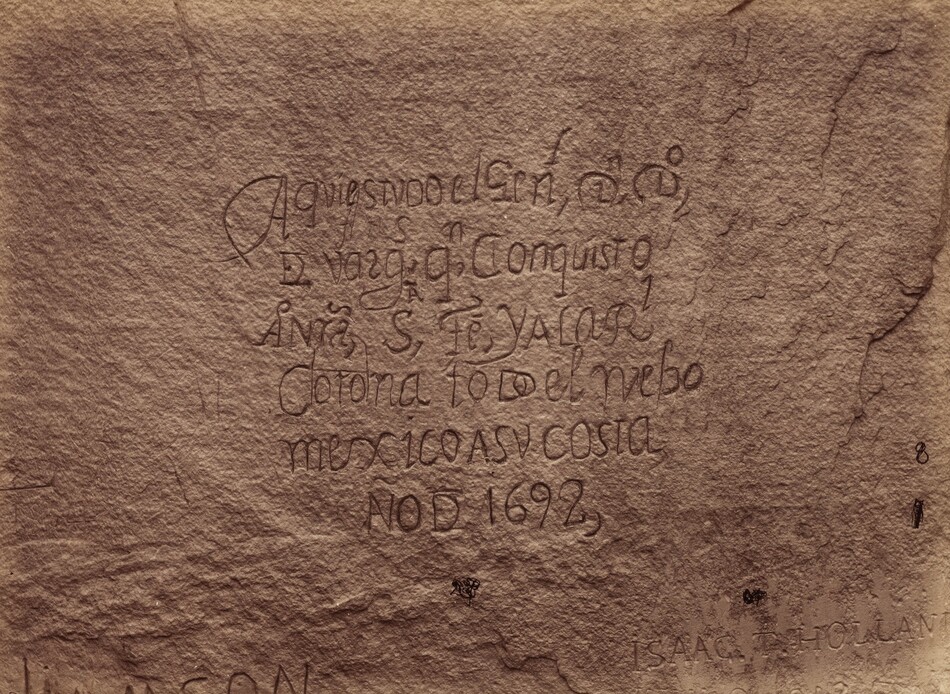 Aqui estvDo el Genl, Dn. Do,
DE vargs. qn, Conquisto
Anra, Sa, Fe, YALARl
Corona toDo el nvebo
mexico ASV costa
ÑO DE 1692,
8
ISAAC T. HOLLAN